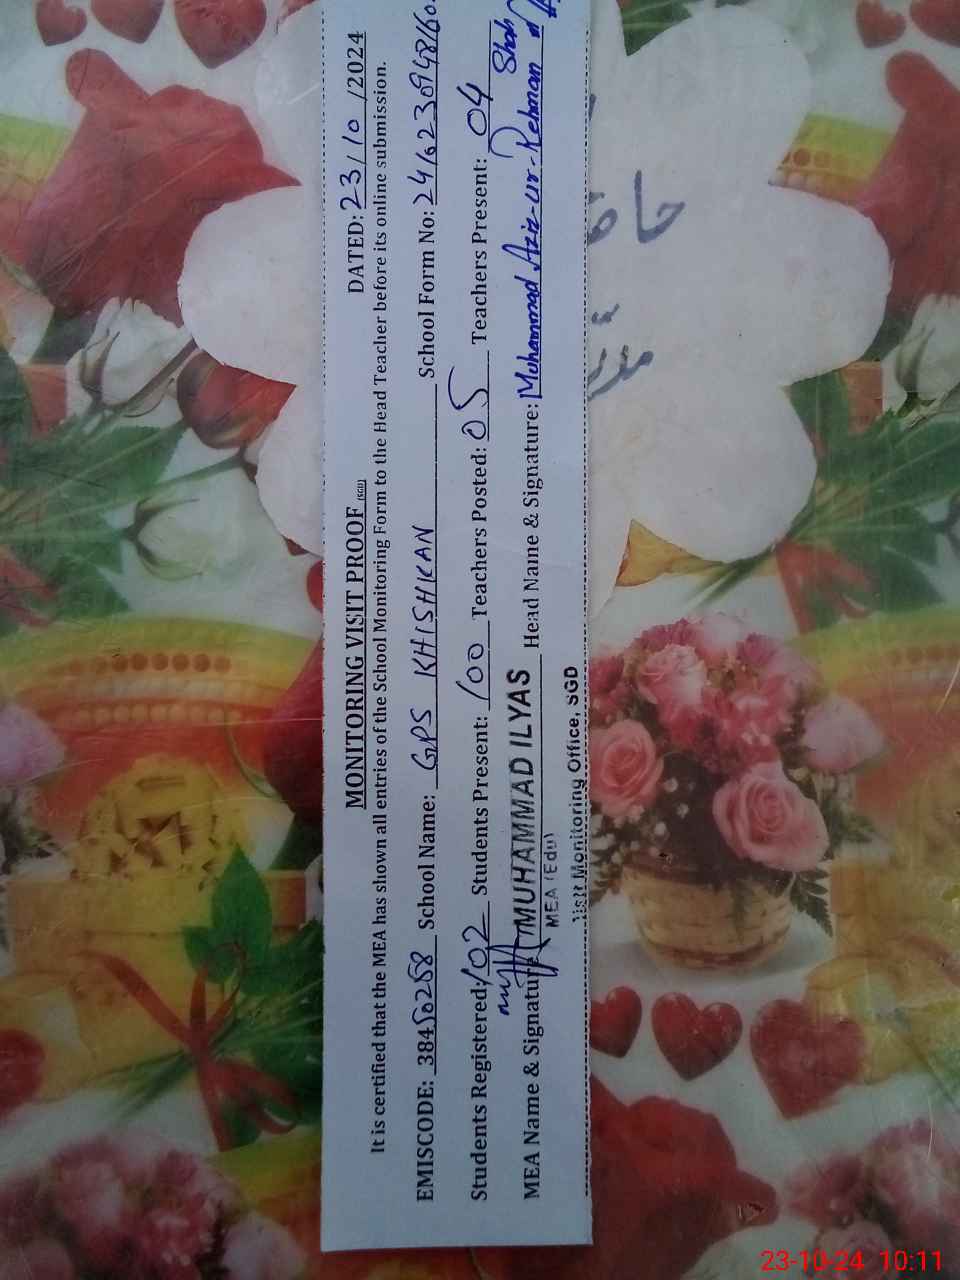 MONITORING VISIT PROOF (SGD) DATED: 23/10/2024
It is certified that the MEA has shown all entries of the School Monitoring Form to the Head Teacher before its online submission.
EMISCODE: 38450258 School Name: GPS KHISHKAN School Form No:
Students Registered: 102 Students Present: 100 Teachers Posted: 05 Teachers Present: 04
MEA Name & Signature: MUHAMMAD ILYAS Head Name & Signature: Muhammad Aziz-ur-Rehman Shah
MEA (Edu)
Monitoring Office, SGD
23-10-24 10:11